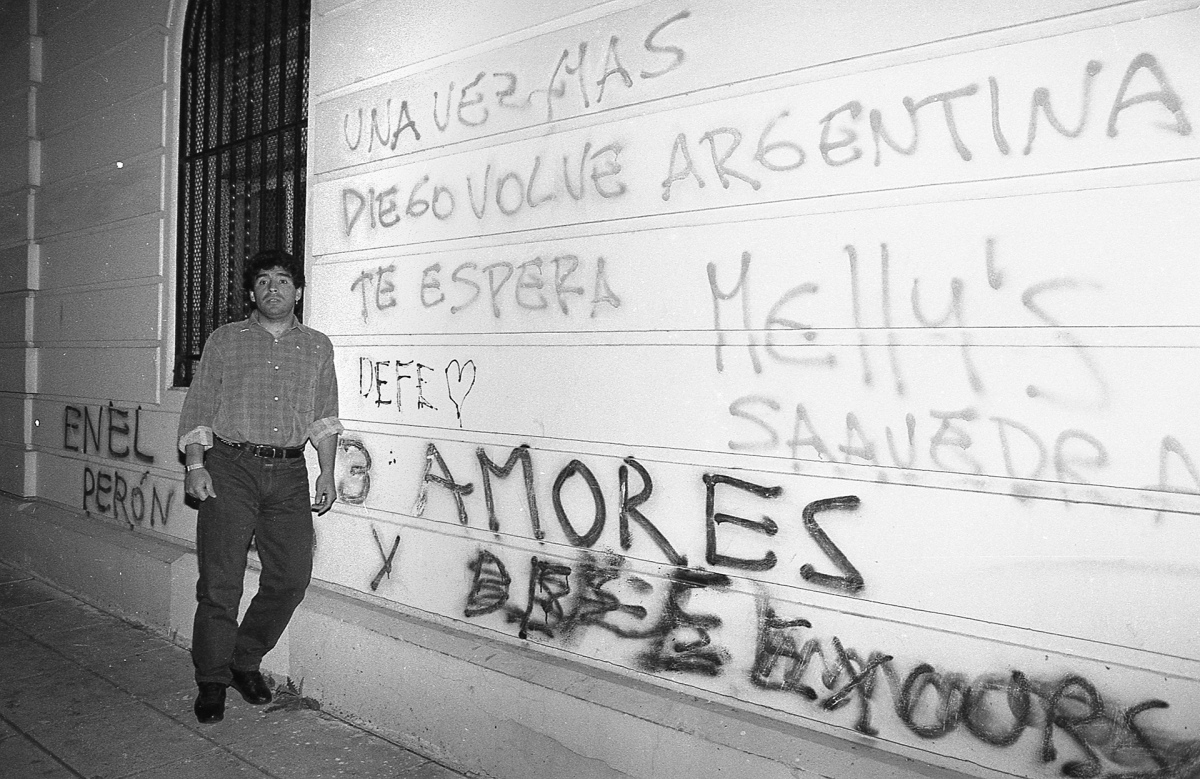 UNA VEZ MAS
DIEGO VOLVE ARGENTINA
TE ESPERA
Melly's
DEFE
SAAVEDRA
EN EL
PERÓN
3: AMORES
X